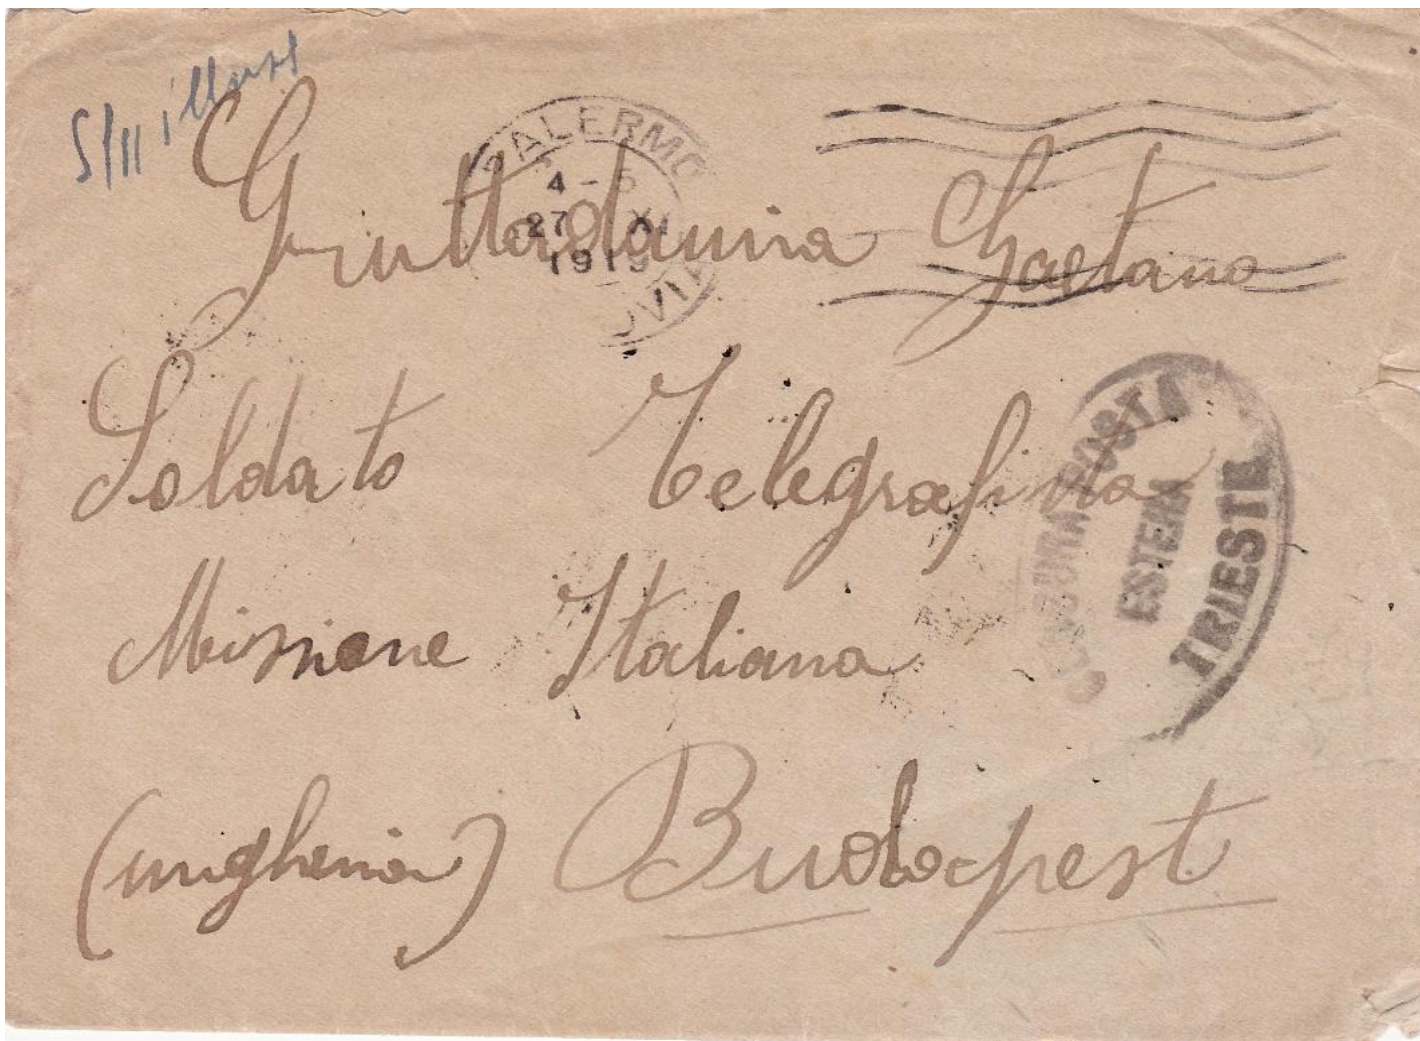 S/11 illust
PALERMO
4 - 5
27 XI
1919
Gruttadauria Gaetano
Soldato Telegrafista
Missione Italiana
(ungheria) Budapest
CENSURA POSTA
ESTERA
TRIESTE